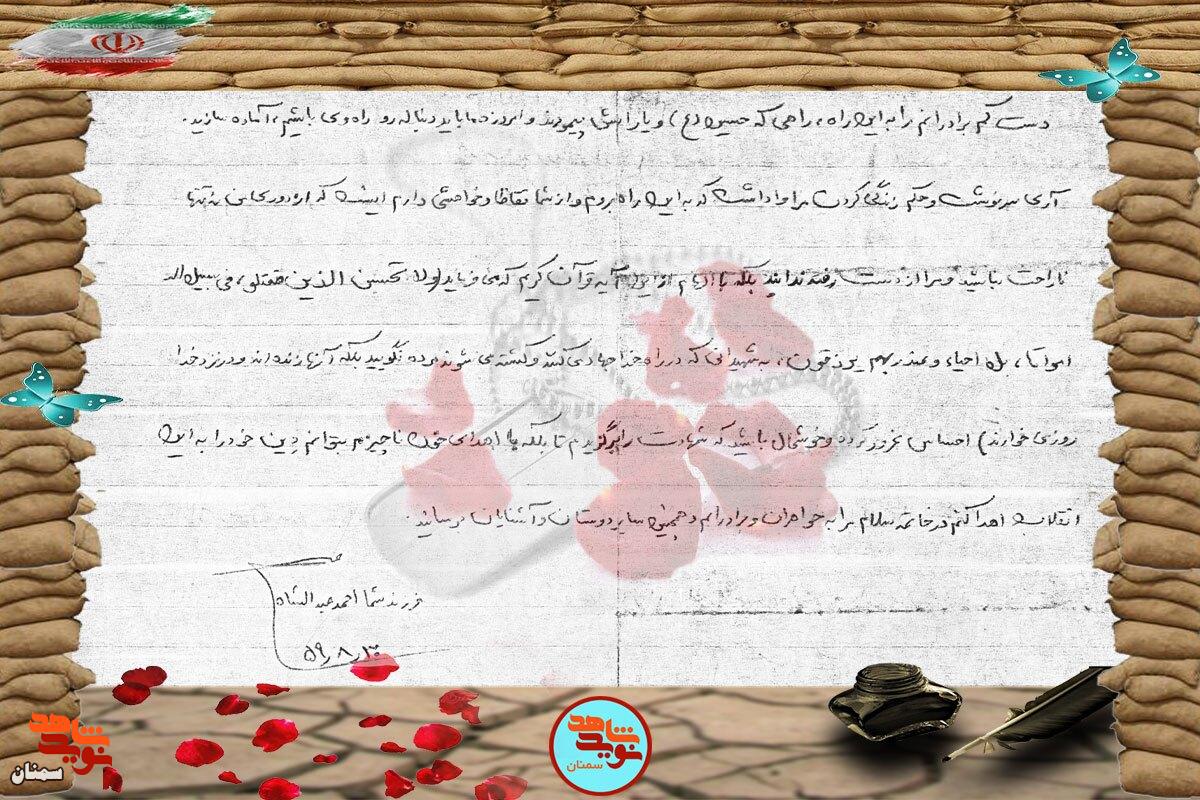 دست کم برادرانم را به این راه، راهی که حسین (ع) و یارانش پیمودند و امروزه ما باید دنباله رو راه وی باشیم، آماده سازید.
آری سرنوشت و حکم زندگی کردن مرا واداشت که به این راه بروم و از شما تقاضا و خواهشی دارم اینست که از دوری من نه تنها
ناراحت نباشید و مرا از دست رفته ندانید بلکه با الهام از این آیه قرآن کریم که می فرماید (ولا تحسبن الذین قتلو، فی سبیل الله
امواتا، بل احیاء و عند ربهم یرزقون، به شهدانی که در راه خدا جهاد می کنند و کشته می شوند مرده نگویید بلکه آنها زنده اند و در نزد خدا
روزی خوارند) احساس غرور کرده و خوشحال باشید که شهادت را برگزیدم تا بلکه با اهدای خون ناچیزم بتوانم دین خود را به این
انقلاب اهدا کنم در خاتمه سلام مرا به خواهران و برادرانم و همچنین سایر دوستان و آشنایان برسانید.
فرزند شما احمد عبدالشاه
۵۹/۸/۳۰
نوید شاهد
سمنان
نوید شاهد
سمنان